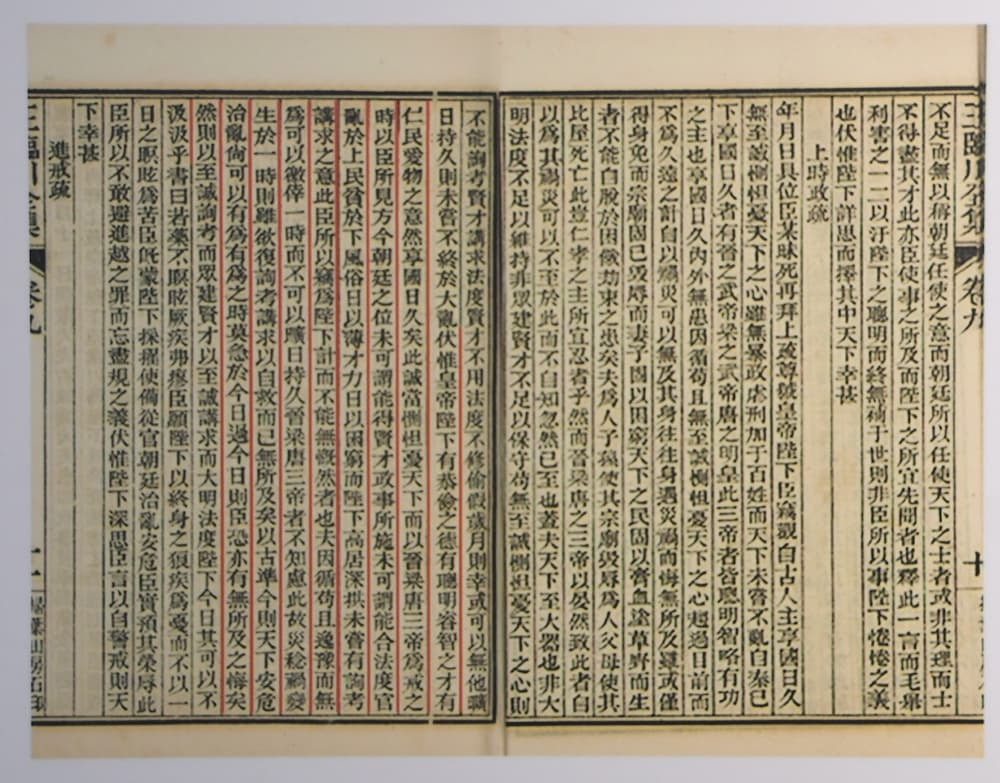 不足而無以稱朝廷任使之意而朝廷所以任使天下之士者或非其理而士
不得盡其才此亦臣使事之所及而陛下之所宜先聞者也釋此一言而毛舉
利害之一二以汙陛下之聰明而終無補于世則非臣所以事陛下惓惓之義
也伏惟陛下詳思而擇其中天下幸甚
上時政疏
年月日具位臣某昧死再拜上疏尊號皇帝陛下臣竊觀自古人主享國日久
無至誠惻怛憂天下之心雖無暴政虐刑加于百姓而天下未嘗不亂自秦已
下享國日久者有晉之武帝梁之武帝唐之明皇此三帝者皆聰明智略有功
之主也享國日久內外無患因循苟且無至誠惻怛憂天下之心趨過目前而
不爲久遠之計自以禍災可以無及其身往往身遇災禍而悔無所及雖或僅
得身免而宗廟固已毀辱而妻子固以困窮天下之民固以膏血塗草野而生
者不能自脫於困餓劫束之患矣夫爲人子孫使其宗廟毀辱爲人父母使其
比屋死亡此豈仁孝之主所宜忍者乎然而晉梁唐之三帝以晏然致此者自
以爲其禍災可以不至於此而不自知忽然已至也蓋夫天下至大器也非大
明法度不足以維持非眾建賢才不足以保守苟無至誠惻怛憂天下之心則
不能詢考賢才講求法度賢才不用法度不修偷假歲月則幸或可以無他曠
日持久則未嘗不終於大亂伏惟皇帝陛下有恭儉之德有聰明睿智之才有
仁民愛物之意然享國日久矣此誠當惻怛憂天下而以晉梁唐三帝爲戒之
時以臣所見方今朝廷之位未可謂能得賢才政事所施未可謂能合法度官
亂於上民貧於下風俗日以薄才力日以困窮而陛下高居深拱未嘗有詢考
講求之意此臣所以竊爲陛下計而不能無慨然者也夫因循苟且逸豫而無
爲可以徼倖一時而不可以曠日持久晉梁唐三帝者不知慮此故災稔禍變
生於一時則雖欲復詢考講求以自救而已無所及矣以古準今則天下安危
治亂尚可以有爲有爲之時莫急於今日過今日則臣恐亦有無所及之悔矣
然則以至誠詢考而眾建賢才以至誠講求而大明法度陛下今日其可以不
汲汲乎書曰若藥不瞑眩厥疾弗瘳臣願陛下以終身之狼疾爲憂而不以一
日之瞑眩爲苦臣既蒙陛下採擢使備從官朝廷治亂安危臣實預其榮辱此
臣所以不敢避進越之罪而忘盡規之義伏惟陛下深思臣言以自警戒則天
下幸甚
進戒疏